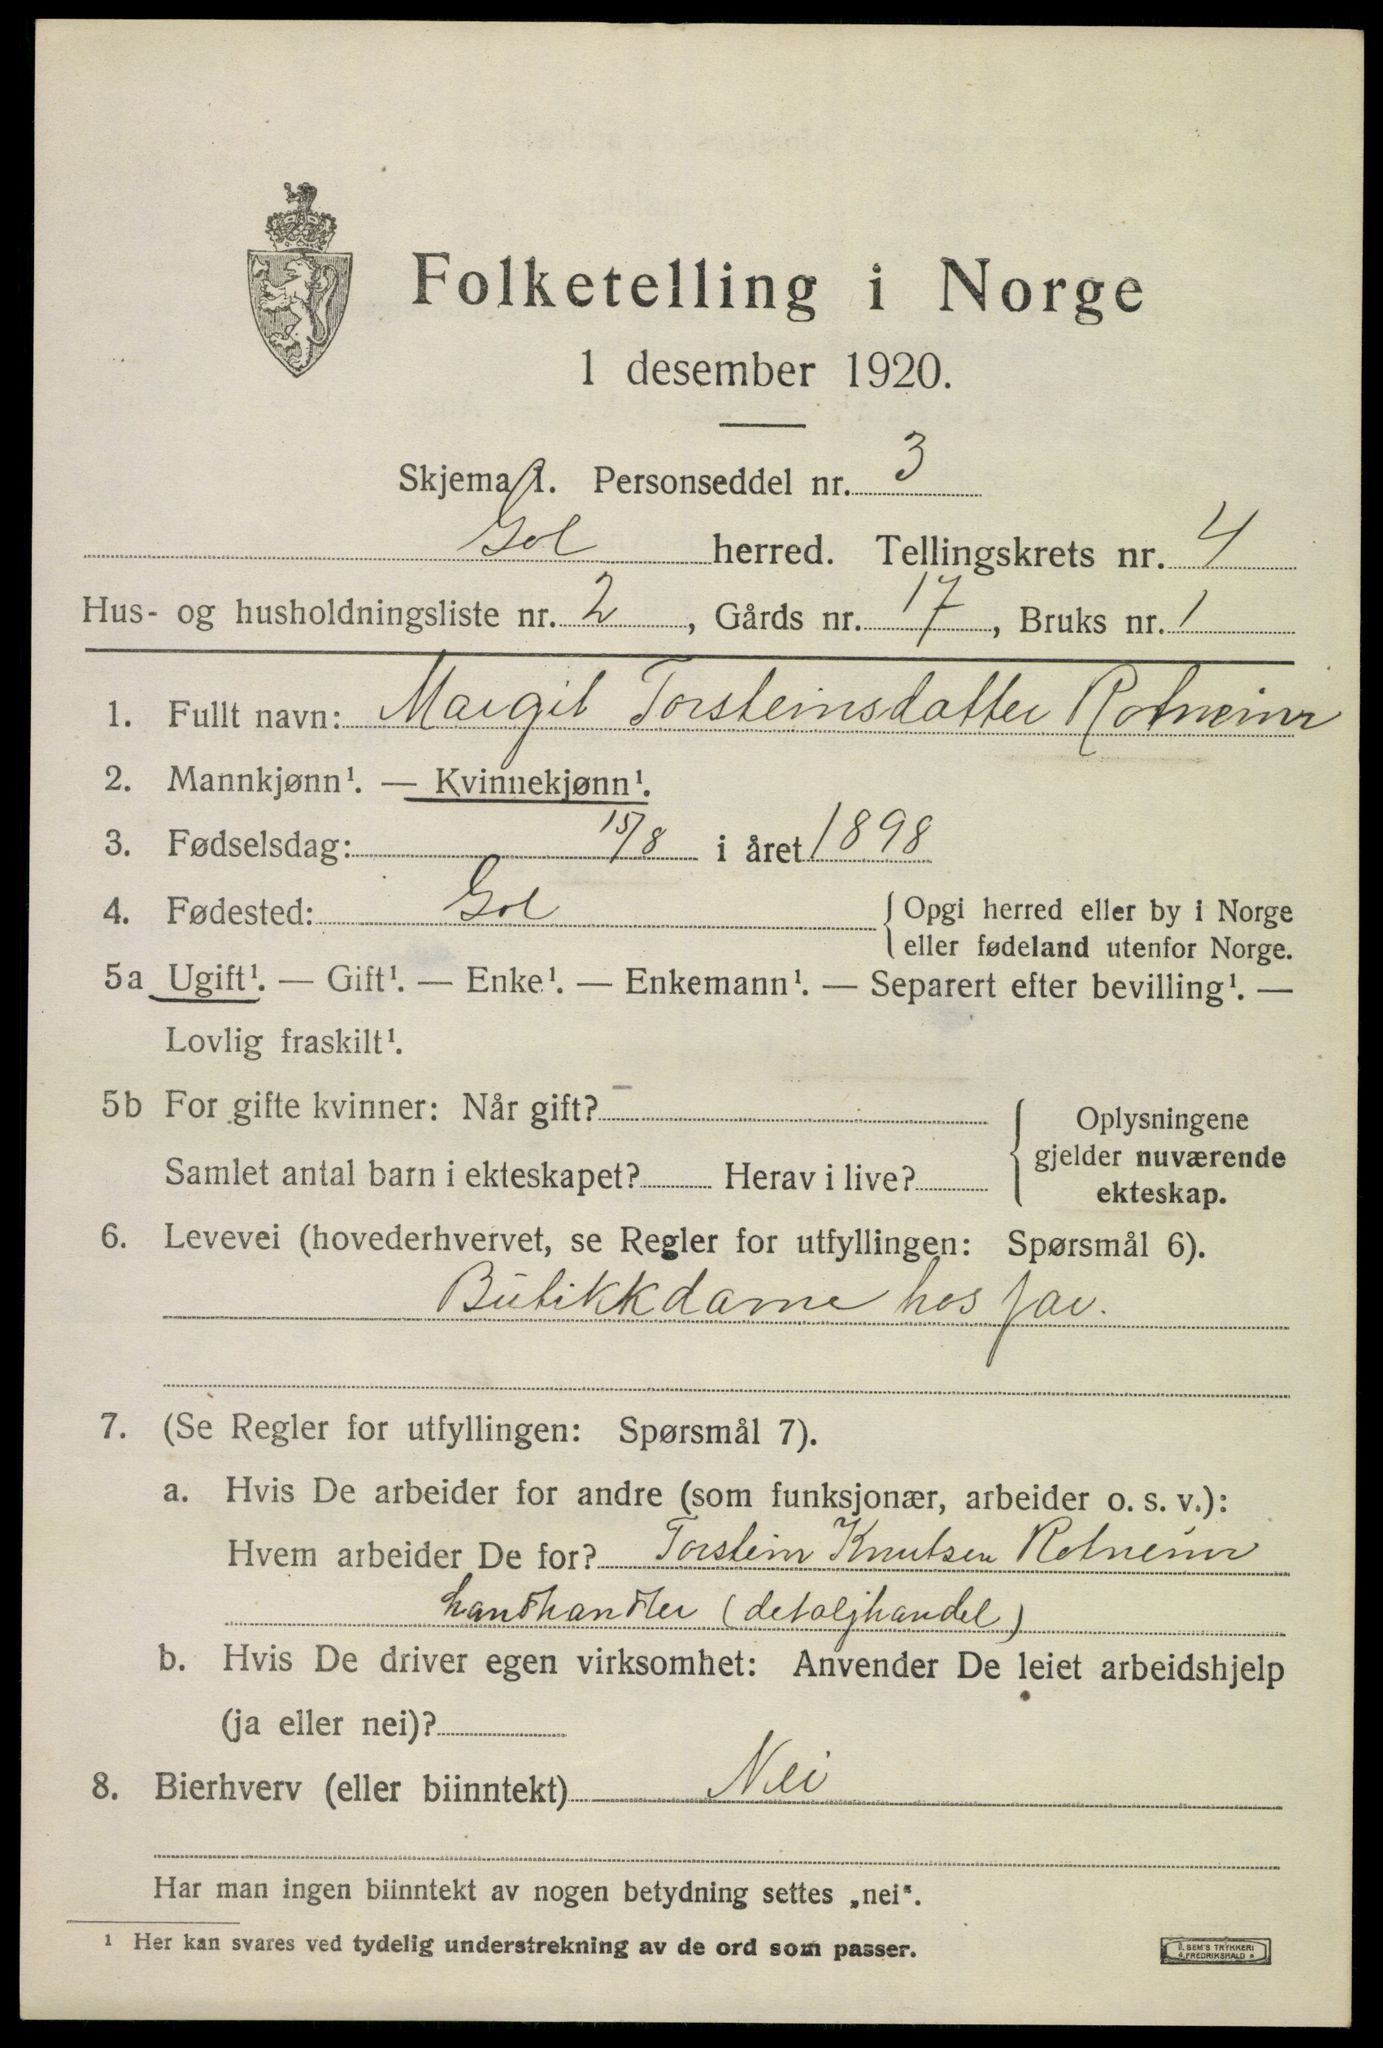 Folketelling i Norge
1 desember 1920.
Skjema 1. Personseddel nr. 3
Gol herred. Tellingskrets nr. 4
Hus- og husholdningsliste nr. 2, Gårds nr. 17, Bruks nr. 1
1. Fullt navn: Margit Torsteinsdatter Rotneim
2. Mannkjønn¹. — Kvinnekjønn¹.
3. Fødselsdag: 15/8 i året 1898
4. Fødested: Gol { Opgi herred eller by i Norge
eller fødeland utenfor Norge.
5a Ugift¹. — Gift¹. — Enke¹. — Enkemann¹. — Separert efter bevilling¹. —
Lovlig fraskilt¹.
5b For gifte kvinner: Når gift?
Samlet antal barn i ekteskapet? Herav i live?
Oplysningene
gjelder nuværende
ekteskap.
6. Levevei (hovederhvervet, se Regler for utfyllingen: Spørsmål 6).
Butikkdame hos far.
7. (Se Regler for utfyllingen: Spørsmål 7).
a. Hvis De arbeider for andre (som funksjonær, arbeider o. s. v.):
Hvem arbeider De for? Torstein Knutsen Rotneim
Landhandler (detaljhandel)
b. Hvis De driver egen virksomhet: Anvender De leiet arbeidshjelp
(ja eller nei)?
8. Bierhverv (eller biinntekt) Nei
Har man ingen biinntekt av nogen betydning settes „nei".
¹ Her kan svares ved tydelig understrekning av de ord som passer.
E. SEM'S TRYKKERI
FREDRIKSHALD